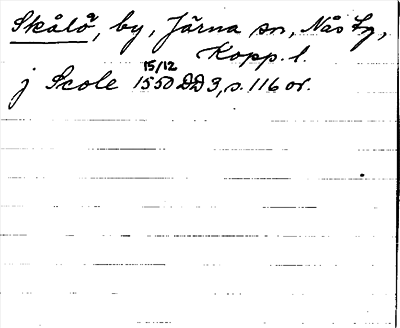 Skålö, by, Järna sn, Nås tg,
Kopp. l.
15/12
j Scole 1550 DD 3, s. 116 or.